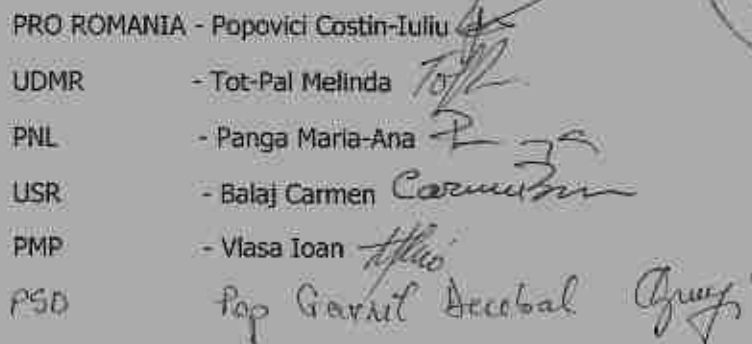 PRO ROMANIA - Popovici Costin-Iuliu
UDMR - Tot-Pal Melinda
PNL - Panga Maria-Ana
USR - Balaj Carmen Carmen
PMP - Vlasa Ioan
PSD Pop Gavril Decebal